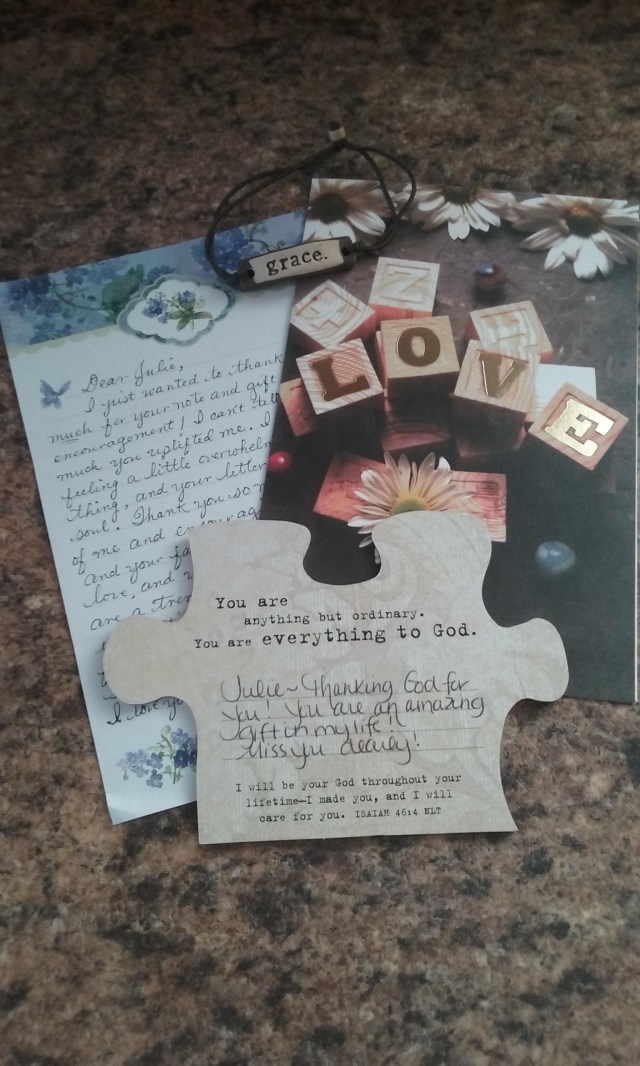 grace.
L O V E
Z
Dear Julie,
I just wanted to thank
much for your note and gift
encouragement! I can't tell
much you uplifted me. I
feeling a little
thing, and your letter
soul. Thank you so
of me and
and your
love, and
are a
I love
You are
anything but ordinary.
You are everything to God.
Julie~Thanking God for
you! You are an amazing
gift in my life!!
Miss you dearly!
I will be your God throughout your
lifetime—I made you, and I will
care for you. ISAIAH 46:4 NLT